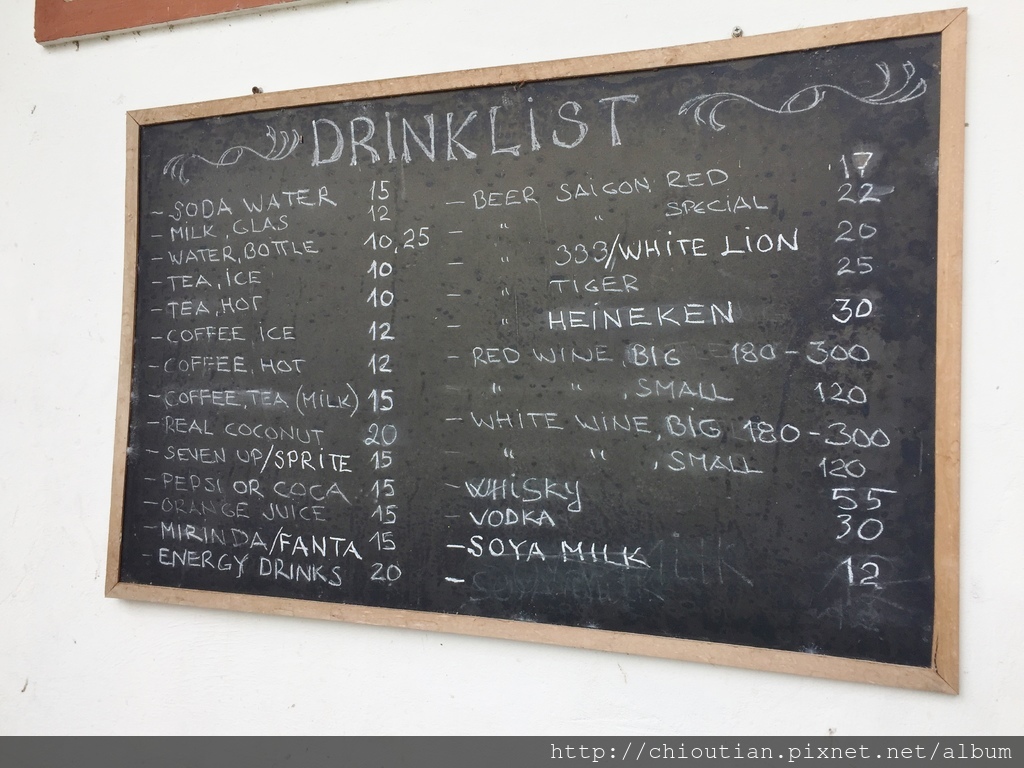 DRINKLIST
- SODA WATER 15
- MILK, GLAS 12
- WATER, BOTTLE 10,25
- TEA, ICE 10
- TEA, HOT 10
- COFFEE, ICE 12
- COFFEE, HOT 12
- COFFEE, TEA (MILK) 15
- REAL COCONUT 20
- SEVEN UP/SPRITE 15
- PEPSI OR COCA 15
- ORANGE JUICE 15
- MIRINDA/FANTA 15
- ENERGY DRINKS 20
- BEER SAIGON RED 17
- " " SPECIAL 22
- " 333/WHITE LION 20
- " TIGER 25
- " HEINEKEN 30
- RED WINE, BIG 180-300
- " " , SMALL 120
- WHITE WINE, BIG 180-300
- " " , SMALL 120
- WHISKY 55
- VODKA 30
- SOYA MILK 12
-
http://chioutian.pixnet.net/album